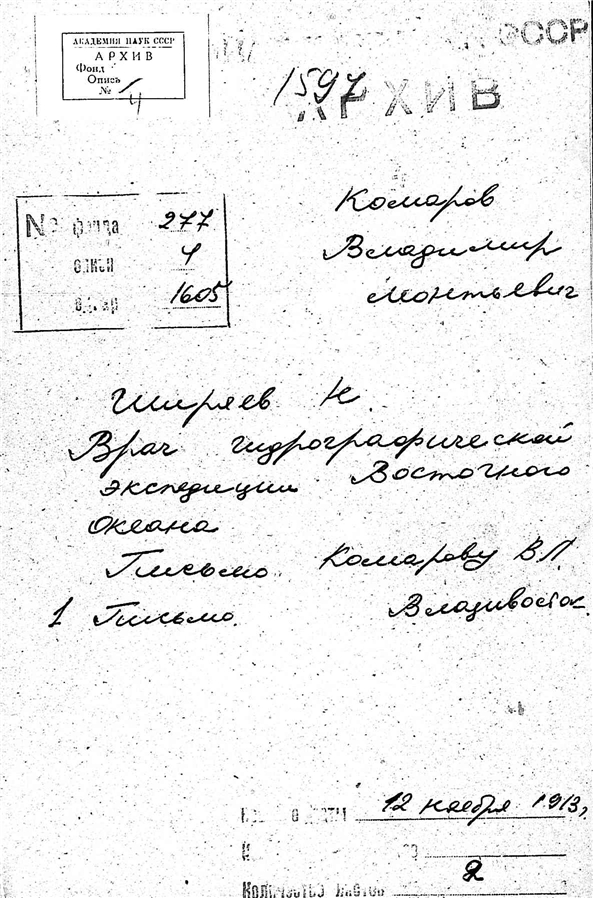 АКАДЕМИЯ НАУК СССР
АРХИВ
Фонд
Опись 1
№ 4
СССР
1597
АРХИВ
№ фонда 277
описи 4
ед. хр 1605
Комаров
Владимир
Леонтьевич
Ширяев Н.
Врач гидрографической
экспедиции Восточного
Океана
Письмо Комарову В.Л.
1 Письмо. Владивосток.
12 ноября 1913 г.
2
Количество листов